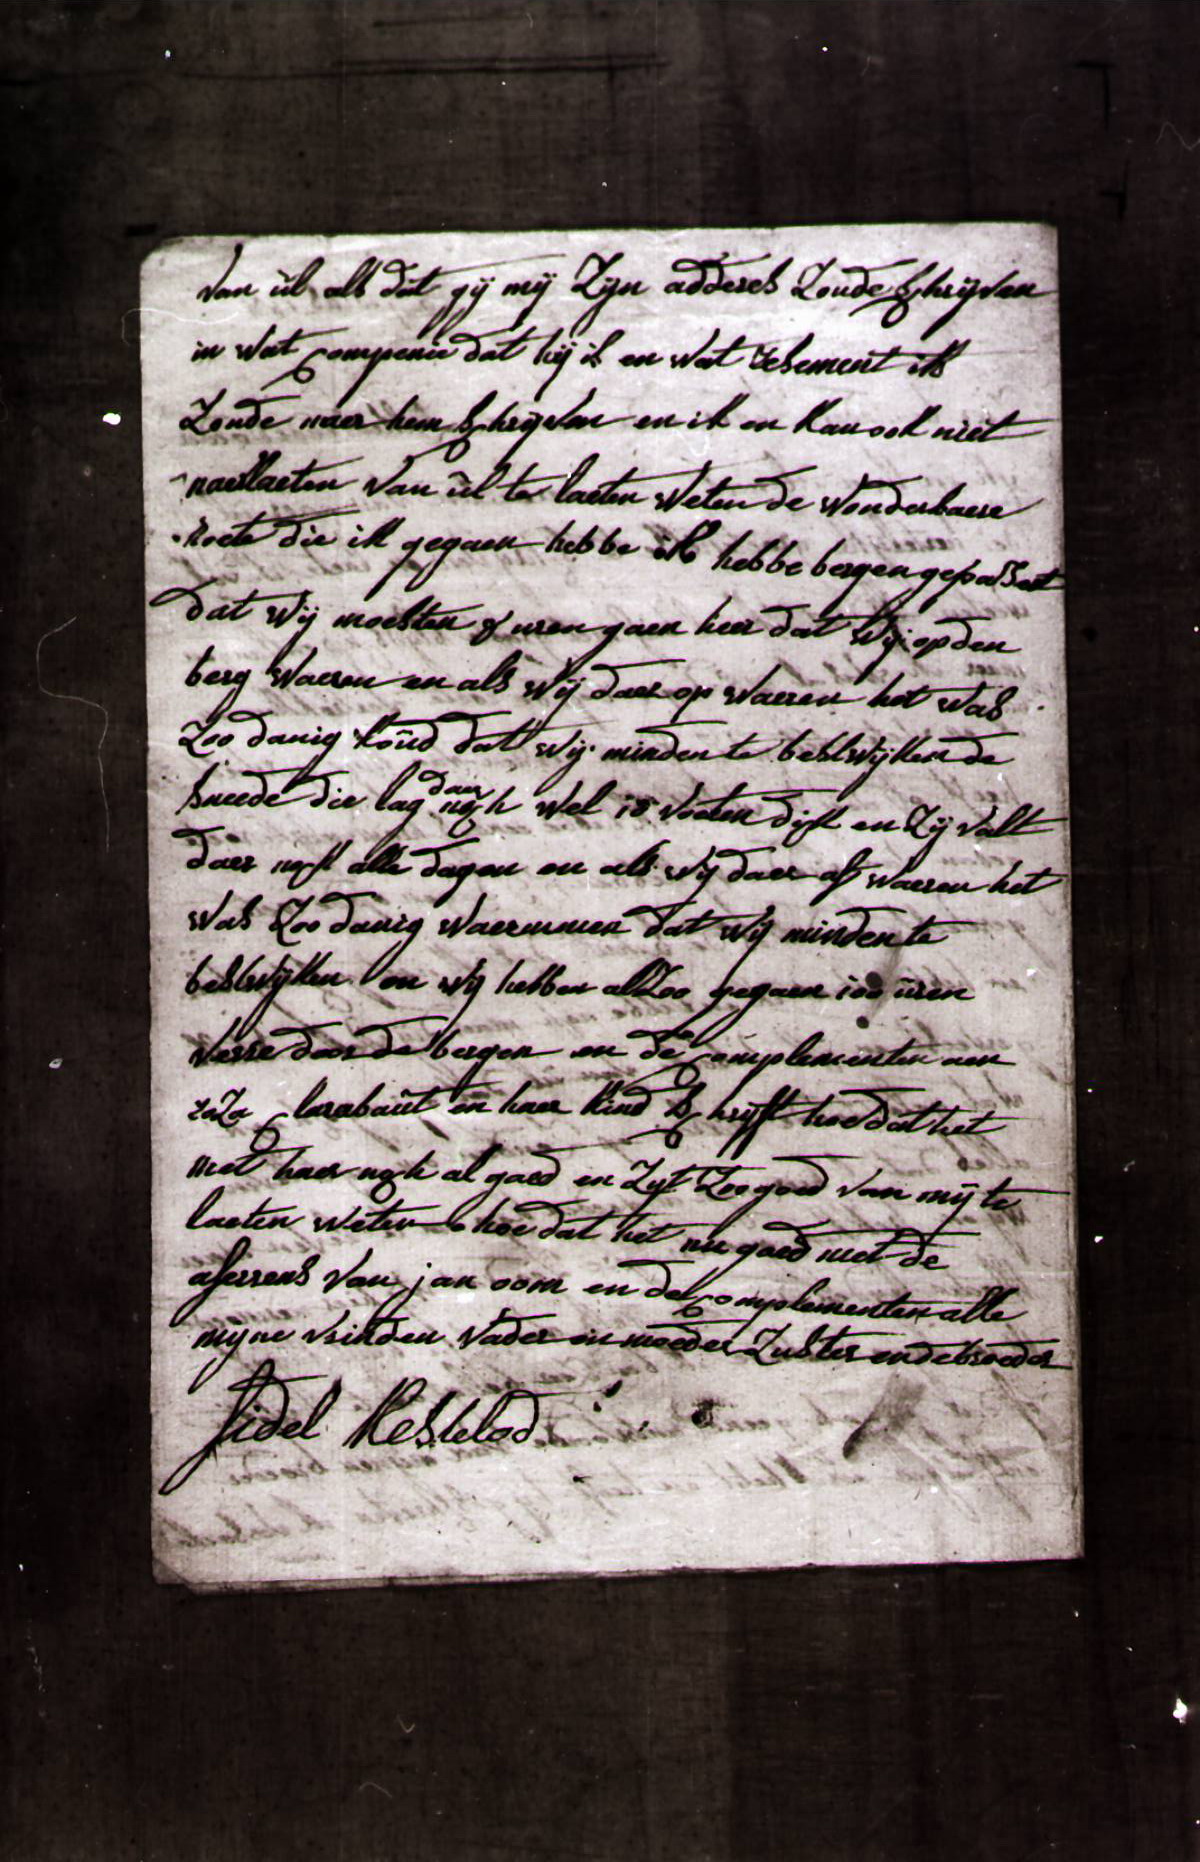 van ül als dat gij mij Zijn adderes Zoude schrijven
in wat companie dat hij is en wat resement ik
Zoude naer hem schrijven en ik en kan ook niet
naerlaeten van ül te laeten weten de wonderbaere
roete die ik gegaen hebbe ik hebbe bergen gepasseert
dat wij moesten 8 uren gaen heer dat wij op den
berg waeren en als wij daer op waeren het was
Zoo danig koud dat wij minden te beswijken de
sneede die lag daer noch wel 10 voeten dijk en Zij valt
daer nogt alle dagen en als wij daer af waeren het
was Zoo danig waerm dat wij minden te
beswijken en wij hebben alzoo gegaen 100 üren
verre door de bergen en de complementen aen
roza clarabaut en haer kind schrijft hoe dat het
met haer noch al gaed en Zijt Zoo goed van mij te
laeten weten hoe dat het nu gaed met de
aferrens van jan oom en de complementen alle
mijne vrinden vader en moeder Zuster ende broeder
fidel Kestelod